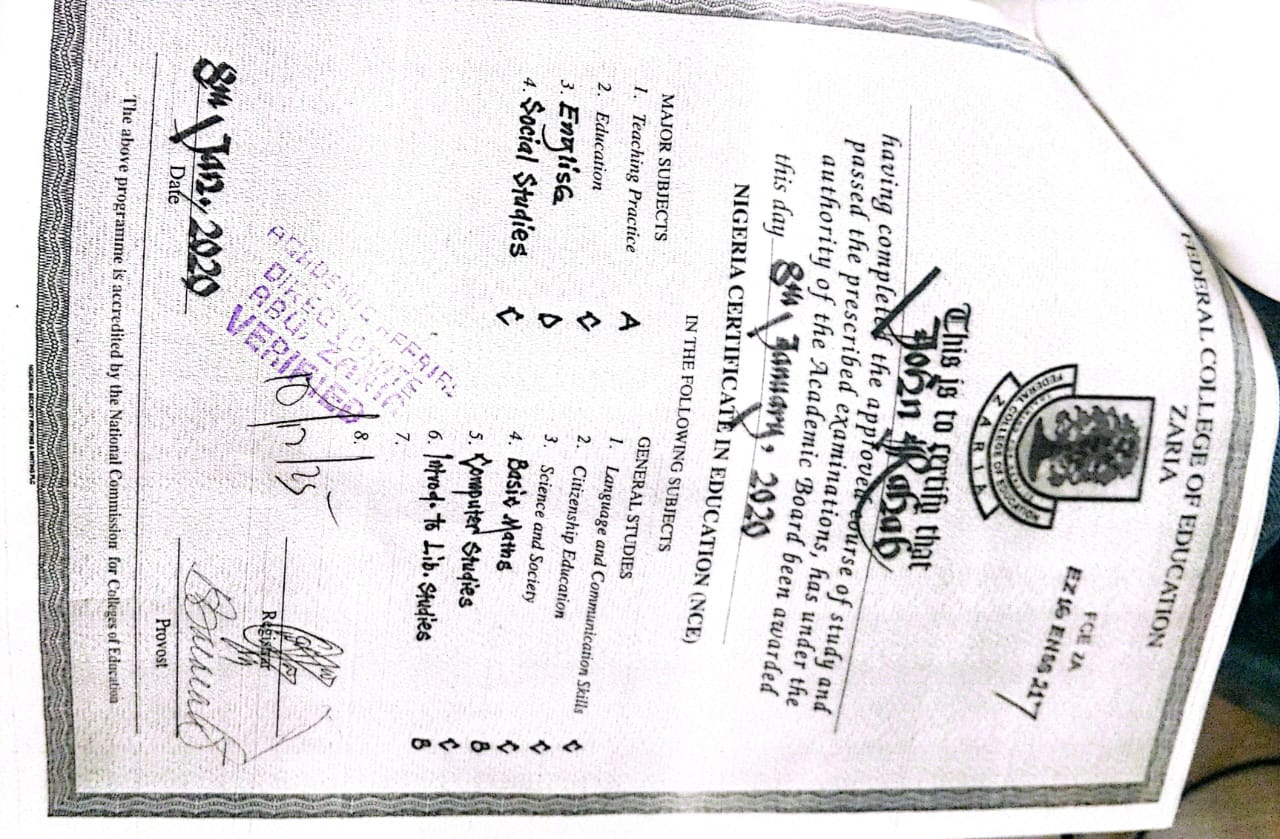 FEDERAL COLLEGE OF EDUCATION
ZARIA
FCE ZA
EZ16 ENSS 217
ZARIA
This is to certify that
John Rahab
having completed the approved course of study and
passed the prescribed examinations, has under the
authority of the Academic Board been awarded
this day 8th January, 2020
NIGERIA CERTIFICATE IN EDUCATION (NCE)
IN THE FOLLOWING SUBJECTS
MAJOR SUBJECTS
1. Teaching Practice A
2. Education C
3. English D
4. Social Studies C
GENERAL STUDIES
1. Language and Communication Skills C
2. Citizenship Education C
3. Science and Society C
4. Basic Maths B
5. Computer Studies C
6. Introd. to Lib. Studies B
7.
8.
ABU, ZARIA
VERIFIED
10/12/25
8th Jan., 2020
Date
Registrar
Provost
The above programme is accredited by the National Commission for Colleges of Education